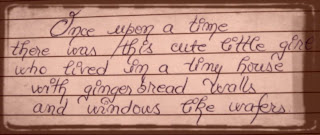 Once upon a time
there was this cute little girl
who lived in a tiny house
with gingerbread walls
and windows like wafers